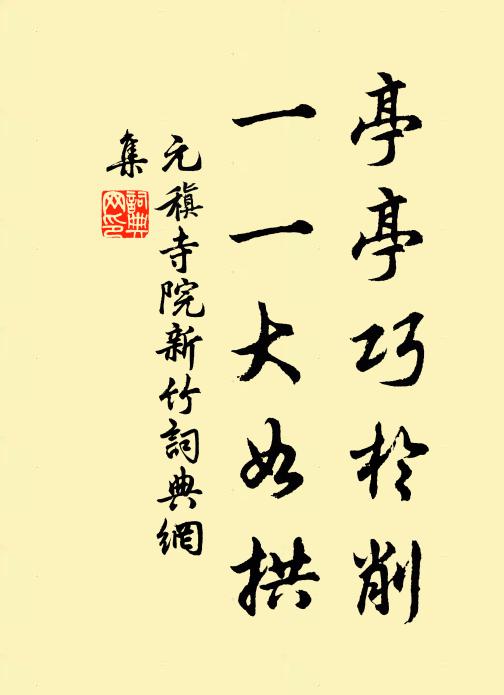 亭亭巧於削
一一大如拱
元稹寺院新竹詞典網
集
詞典
网印